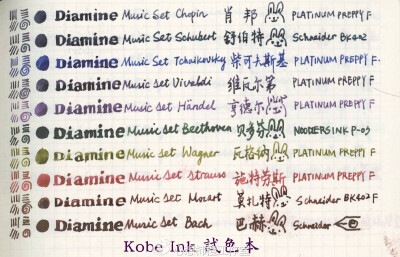 Diamine Music Set Chopin 肖邦 PLATINUM PREPPY F
Diamine Music Set Schubert 舒伯特 Schneider BK402
Diamine Music Set Tchaikovsky 柴可夫斯基 PLATINUM PREPPY F.
Diamine Music Set Vivaldi 维瓦尔第 PLATINUM PREPPY F
Diamine Music Set Händel 亨德尔 PLATINUM PREPPY F
Diamine Music Set Beethoven 贝多芬 NOODLERSINK P-05
Diamine Music Set Wagner 瓦格纳 PLATINUM PREPPY F
Diamine Music Set Strauss 施特劳斯 PLATINUM PREPPY F
Diamine Music Set Mozart 莫扎特 Schneider BK402 F
Diamine Music Set Bach 巴赫 Schneider
Kobe Ink 試色本